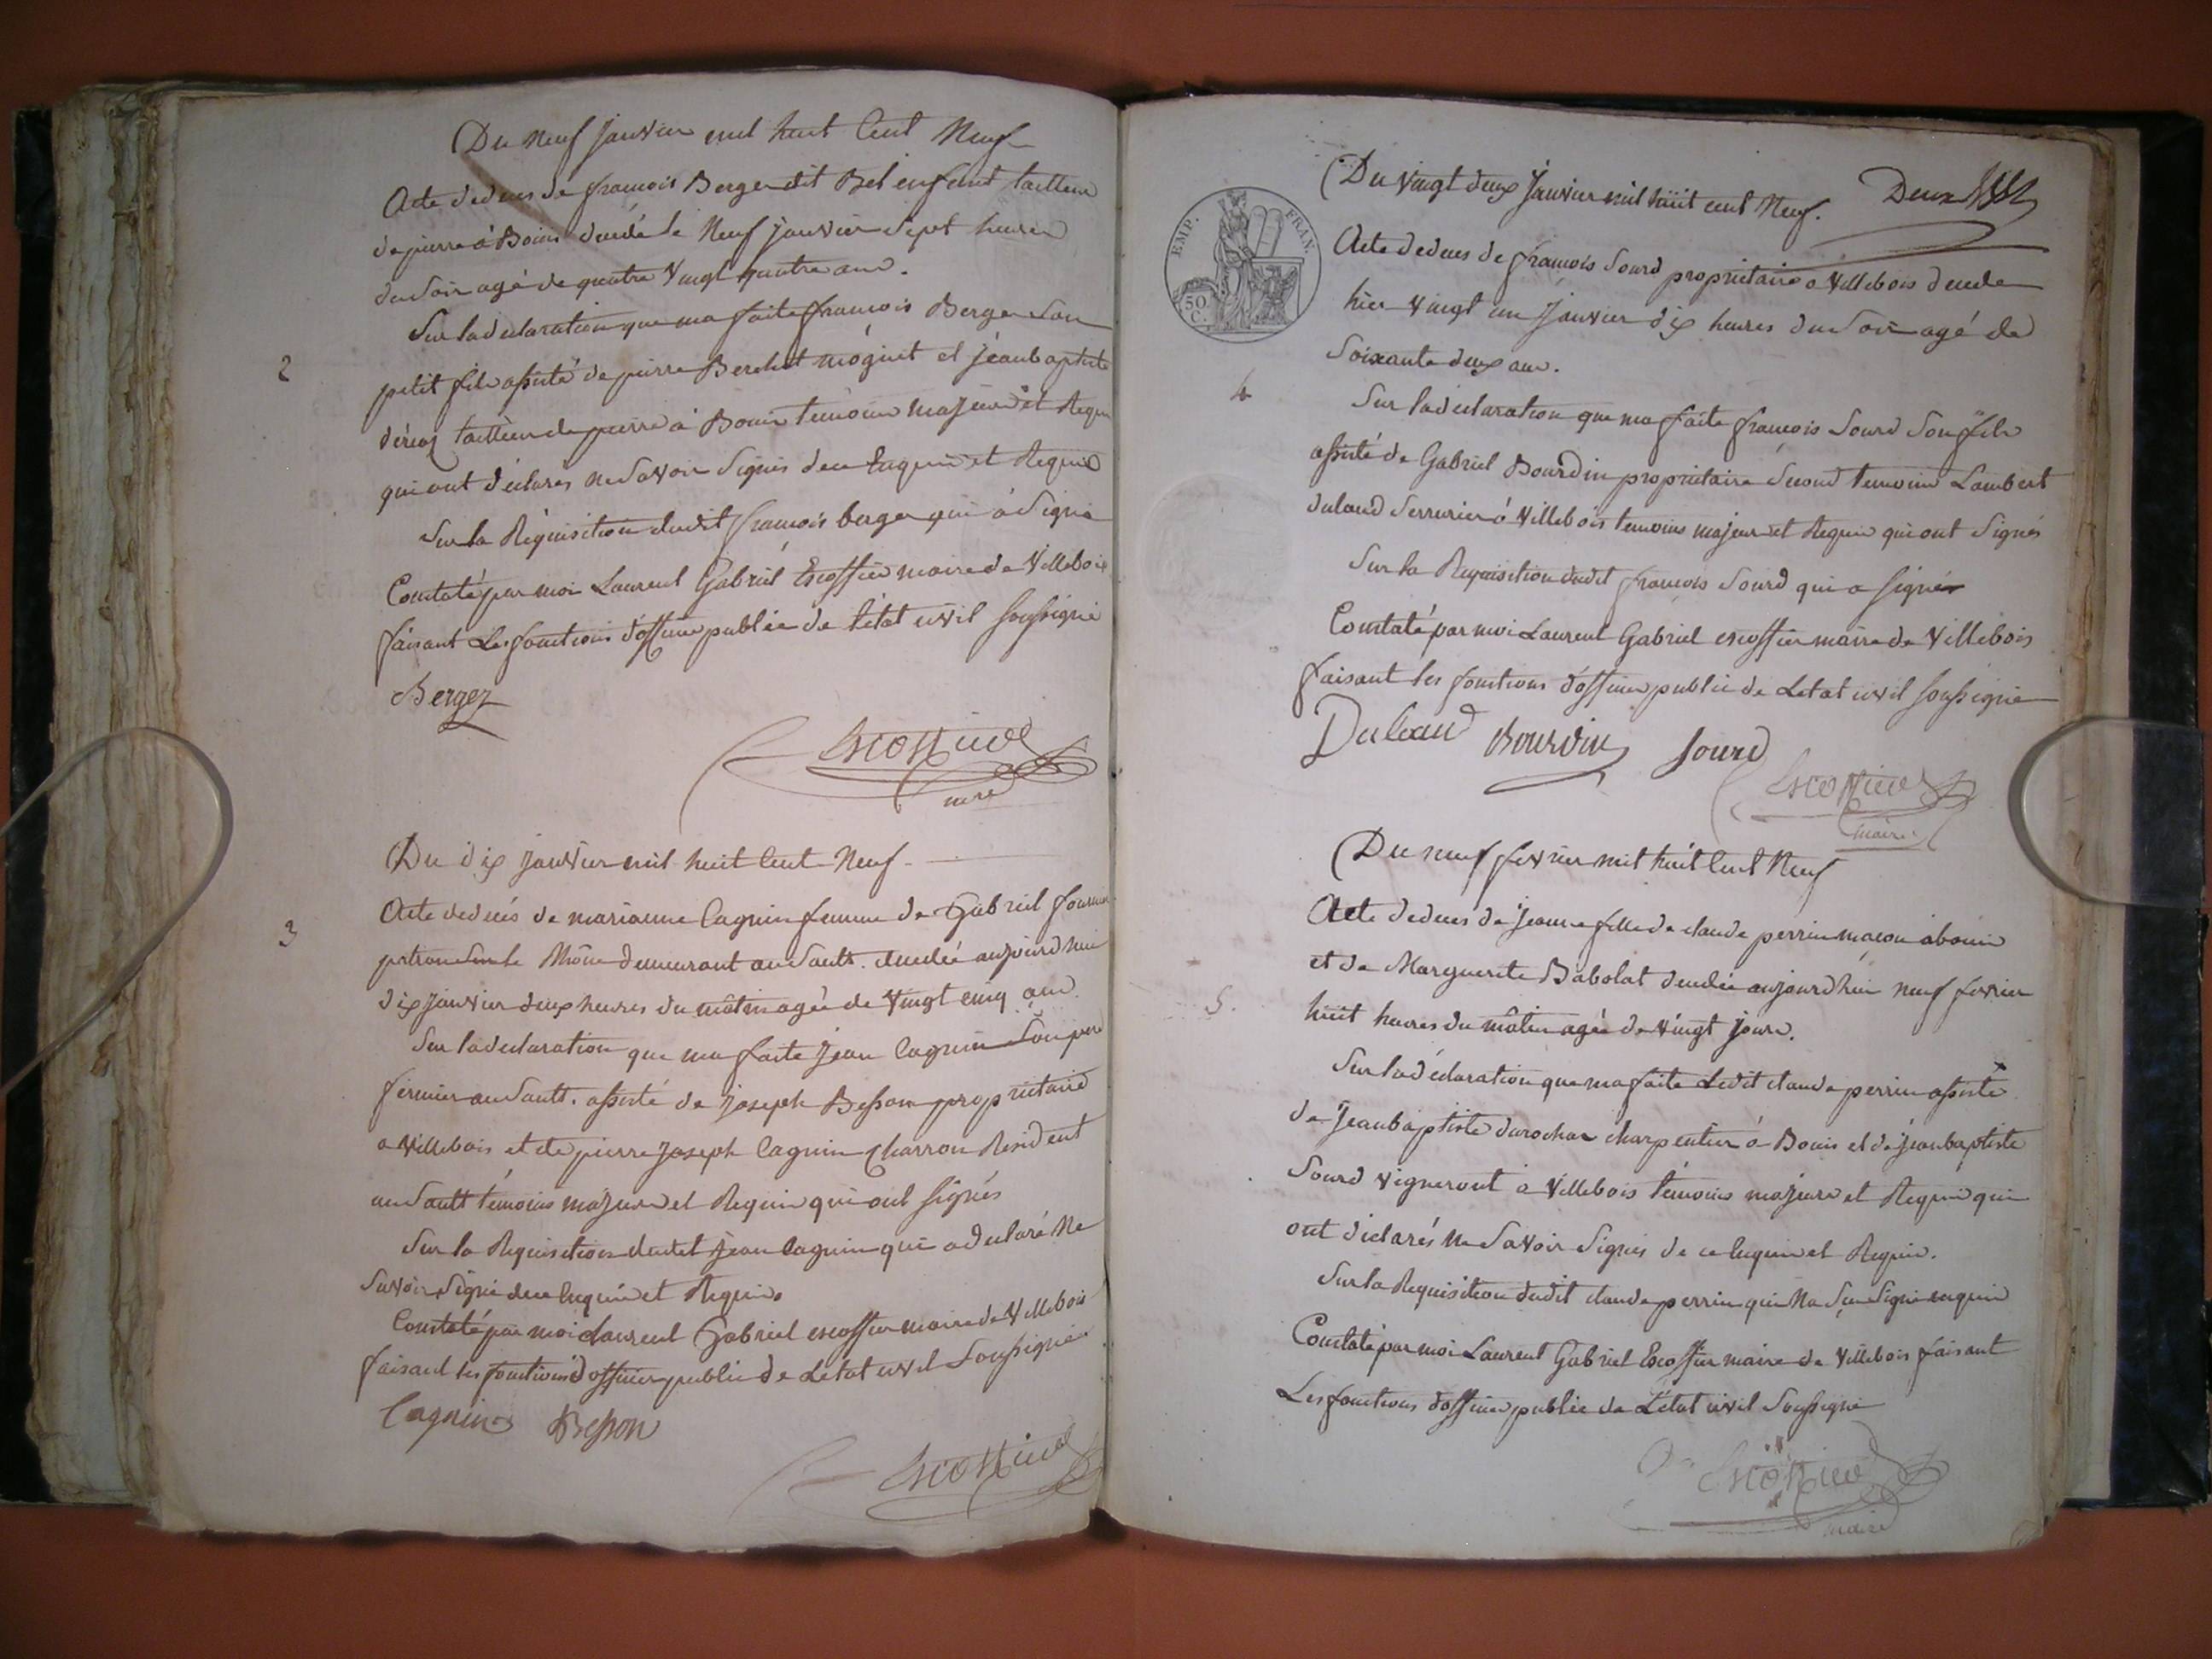 Du neuf janvier mil huit Cent Neuf
Acte dedues de francois Berger dit Bel enfant tailleur
de pierre à Bouis decédé le Neuf janvier Sept heures
du Soir agé de quatre Vingt quatre ans.
Sur la declaration que ma faite francois Berger Son
2
petit fils assisté de pierre Berchet moginet et jeanbaptiste
tailleur de pierre à Bouis temoins majeurs et Requis
qui ont déclarés ne Savoir Signés de ce Enquis et Requis
Sur la Réquisition dudit francois berger qui à Signé
Constaté par moi Laurent Gabriel Escoffier maire de Villebois
faisant Les fonctions d'officier public de l'état civil soussigné
Berger
Escoffier
maire
Du dix janvier mil huit Cent Neuf
Acte dedués de marianne Cagnin femme de Gabriel
3
patron Sur le Rhône demeurant au Sault. decedée aujourdhui
dix janvier deux heures du mâtin agée de Vingt cinq ans
Sur la declaration que ma faite jean Cagnin Son pere
fermier au Sault. assisté de joseph Besson propriétaire
a Villebois et de pierre joseph Cagnin Charron Resident
au Sault témoins majeurs et Requis qui ont signés
Sur la Requisition dudit jean Cagnin qui a declaré Ne
Savoir Signé de ce Enquis et Requis.
Constaté par moi Laurent Gabriel escoffier maire de Villebois
faisant les fonctions d'officier public de Létat civil Soussigné
Cagnin Besson
Escoffier
EMP. FRAN.
50 C.
Du Vingt deux Janvier mil huit cent Neuf. Deux
Acte dedues de francois Sourd propriétaire à Villebois decede
hier Vingt un Janvier dix heures du Soir agé de
Soixante deux ans.
4
Sur la declaration que ma faite francois Sourd Son fils
assisté de Gabriel Bourdin propriétaire Second temoins Lambert
dulaud Serrurier à Villebois temoins majeurs et Requis qui ont Signés
Sur la Requisition dudit francois Sourd qui a signé
Constaté par moi Laurent Gabriel escoffier maire de Villebois
faisant les fonctions d'officier public de Létat civil soussigné
Dulaud Bourdin Sourd
Escoffier
maire
Du neuf fevrier mil huit Cent Neuf
Acte dedues de Jeanne fille de claude perrin maçon à bouis
et de Marguerite Babolat decedée aujourdhui neuf fevrier
5.
huit heures du mâtin agée de Vingt jours.
Sur la déclaration que ma faite Ledit claude perrin assisté
de Jeanbaptiste durochar charpentier à Bouis et de jeanbaptiste
Sourd Vigneront à Villebois témoins majeurs et Requis qui
ont déclarés Ne Savoir Signés de ce Enquis et Requis.
Sur la Requisition dudit claude perrin qui Na Su Signé enquis
Constaté par moi Laurent Gabriel Escoffier maire de Villebois faisant
Les fonctions d'officier public de L'état civil Soussigné
Escoffier
maire